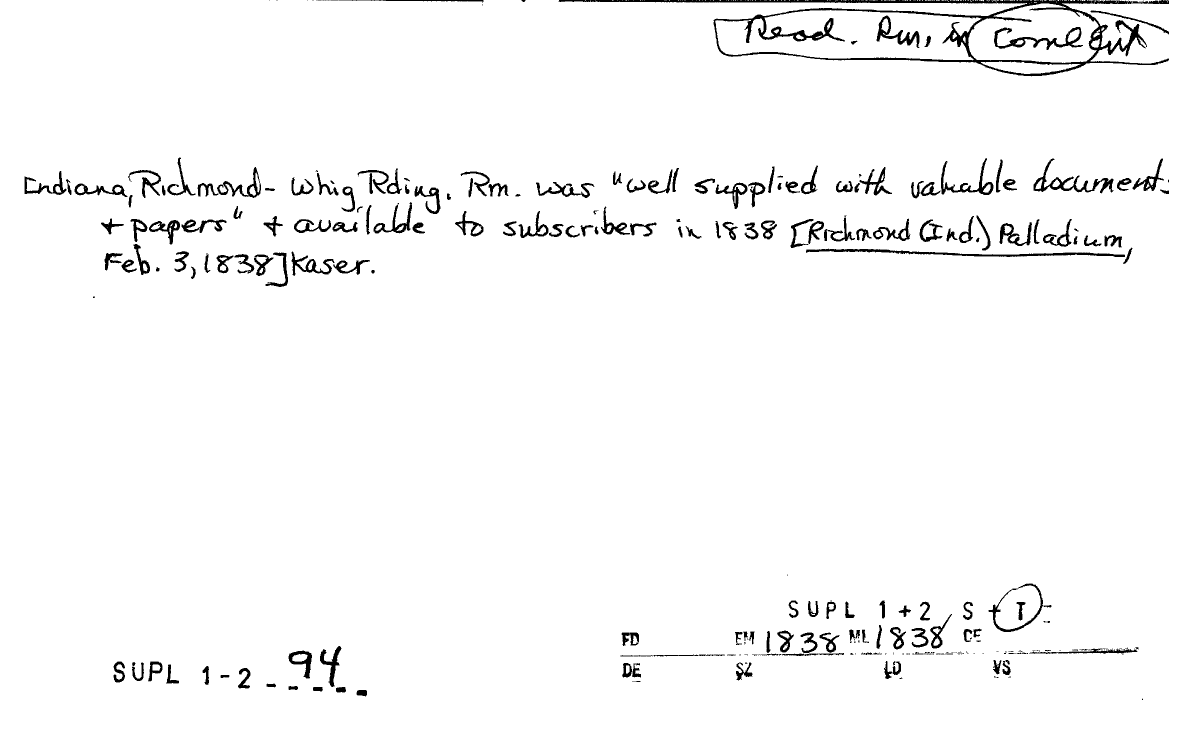 Read. Rm, in Coml Est
Indiana, Richmond- Whig Rding. Rm. was "well supplied with valuable documents
+ papers" + available to subscribers in 1838 [Richmond (Ind.) Palladium,
Feb. 3, 1838] Kaser.
SUPL 1+2 S + T
FD EM 1838 ML 1838 CE
SUPL 1-2 94
DE SZ LD VS